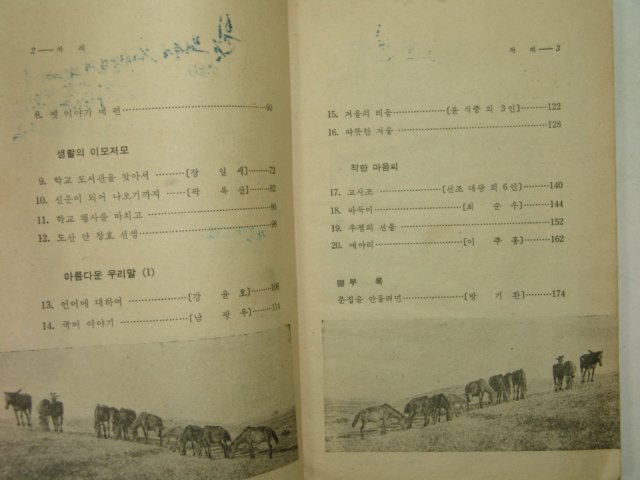 2 — 차 례
8. 옛 이야기 세 편 ……… 60
생활의 이모저모
9. 학교 도서관을 찾아서 ……〔장 일 세〕……72
10. 신문이 되어 나오기까지 ……〔곽 복 산〕……82
11. 학교 행사를 마치고 ……… 91
12. 도산 안 창호 선생 ……… 98
아름다운 우리말 (1)
13. 언어에 대하여 ………〔강 윤 호〕……106
14. 국어 이야기 ………〔남 광 우〕……114
차 례 — 3
15. 겨울의 리듬 ………〔윤 석중 외 3 인〕……122
16. 따뜻한 겨울 ……… 128
착한 마음씨
17. 고시조 ………〔선조 대왕 외 6 인〕……140
18. 바둑이 ………〔최 순 우〕……144
19. 우정의 선물 ……… 152
20. 메아리 ………〔이 주 홍〕……162
부 록
문집을 만들려면 ………〔방 기 환〕……174